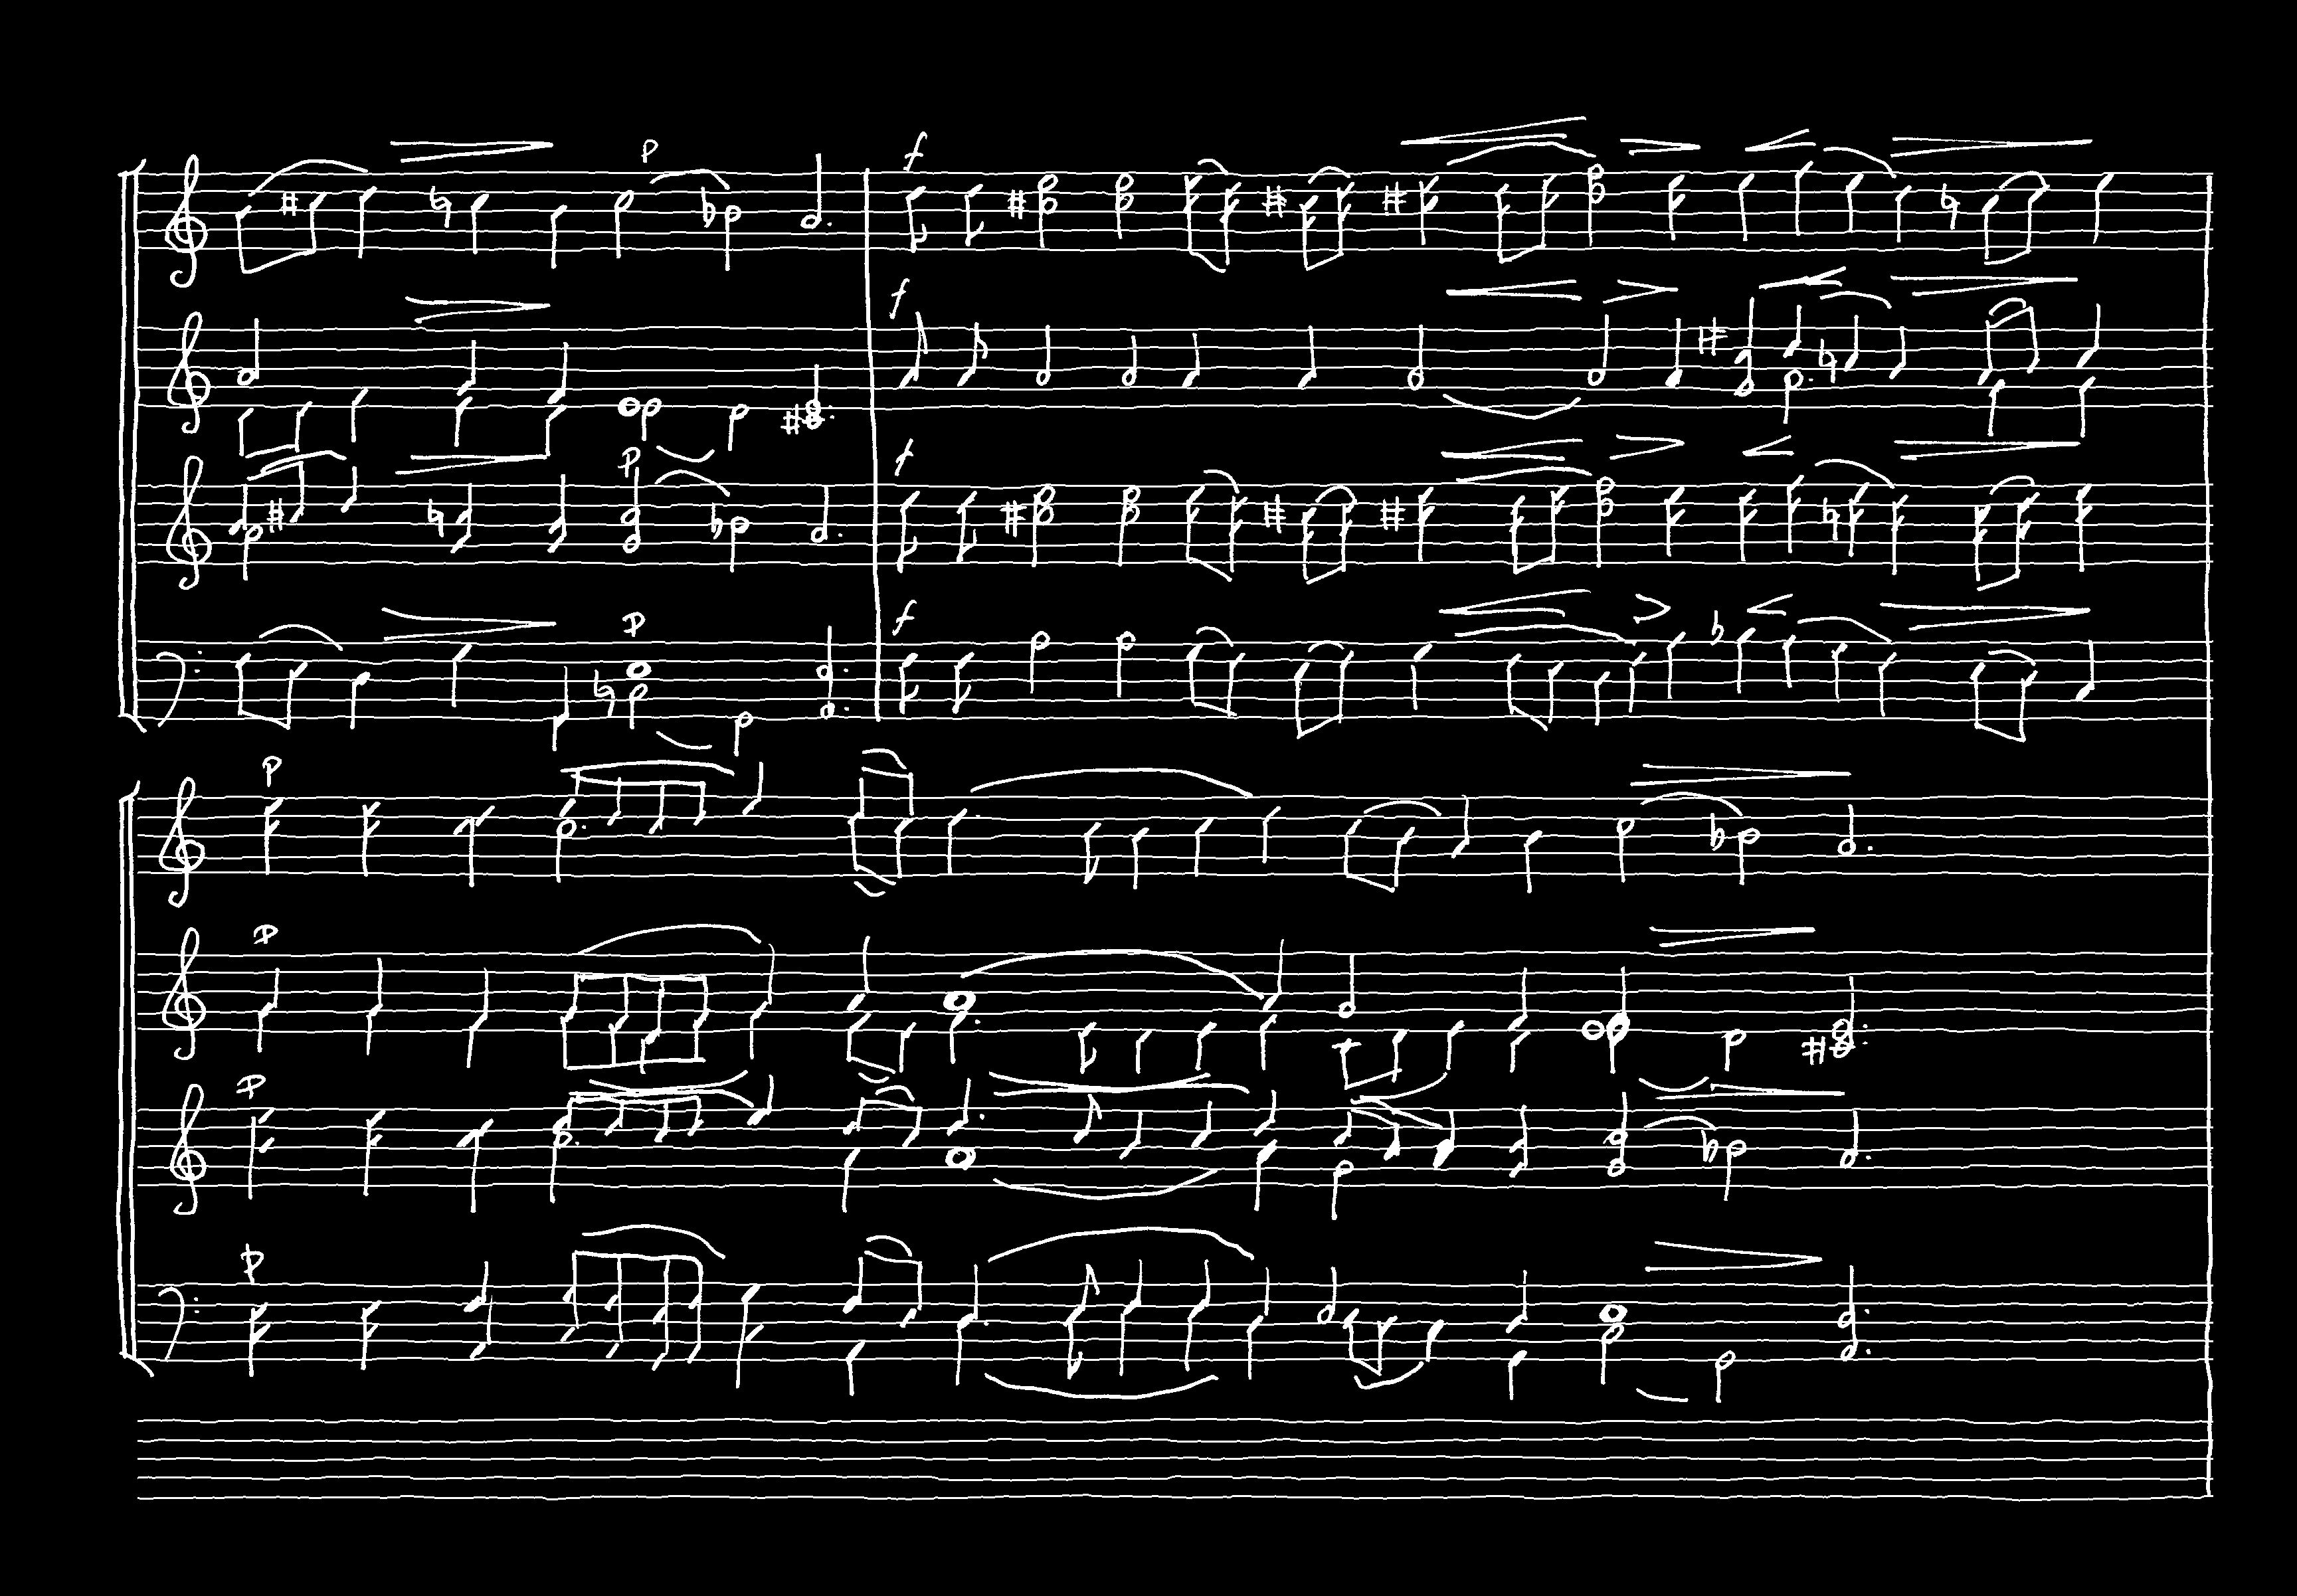 p
f
f
p
f
p
f
p
p
p
p